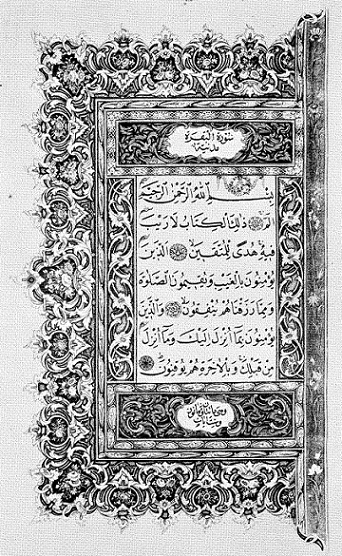 سورة البقرة
مدنية
بسم الله الرحمن الرحيم
الم ذلك الكتاب لا ريب
فيه هدى للمتقين الذين
يؤمنون بالغيب ويقيمون الصلوة
ومما رزقناهم ينفقون والذين
يؤمنون بما انزل اليك وما انزل
من قبلك وبالاخرة هم يوقنون